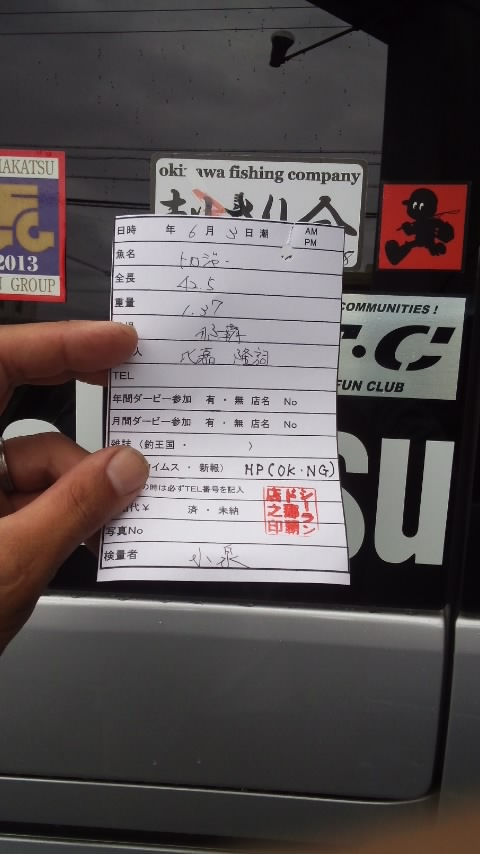 MAKATSU
2013
N GROUP
oki awa fishing company
COMMUNITIES!
FUN CLUB
su
日時 年 6月 5日 潮 AM PM
魚名 トロジャー
全長 42.5
重量 1.37
那覇
人 比嘉 隆詞
TEL
年間ダービー参加 有・無 店名 No
月間ダービー参加 有・無 店名 No
雑誌(釣王国・ )
イムス・新報) HP(OK・NG)
の時は必ずTEL番号を記入
代¥ 済・未納
写真No
検量者 小泉
シーラン
ド那覇
店之印